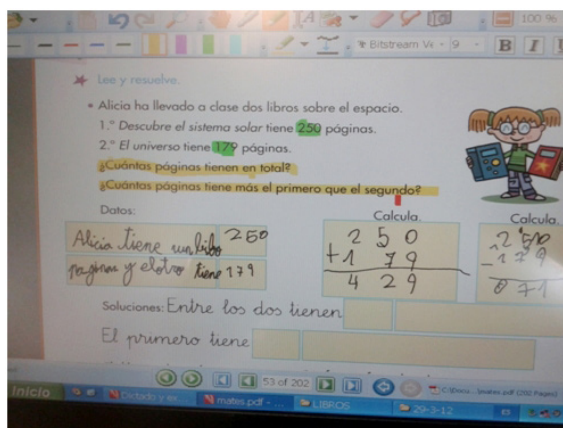 100 %
Bitstream Ve
9
B I
Lee y resuelve.
Alicia ha llevado a clase dos libros sobre el espacio.
1.º Descubre el sistema solar tiene 250 páginas.
2.º El universo tiene 179 páginas.
¿Cuántas páginas tienen en total?
¿Cuántas páginas tiene más el primero que el segundo?
Datos:
Calcula.
Calcula.
Alicia tiene un libro 250
paginas y el otro tiene 179
2 5 0
+1 7 9
4 2 9
2 5 0
-1 7 9
0 7 1
Soluciones: Entre los dos tienen
El primero tiene
53 of 202
Inicio
Dictado y ex...
mates.pdf - ...
LIBROS
29-3-12